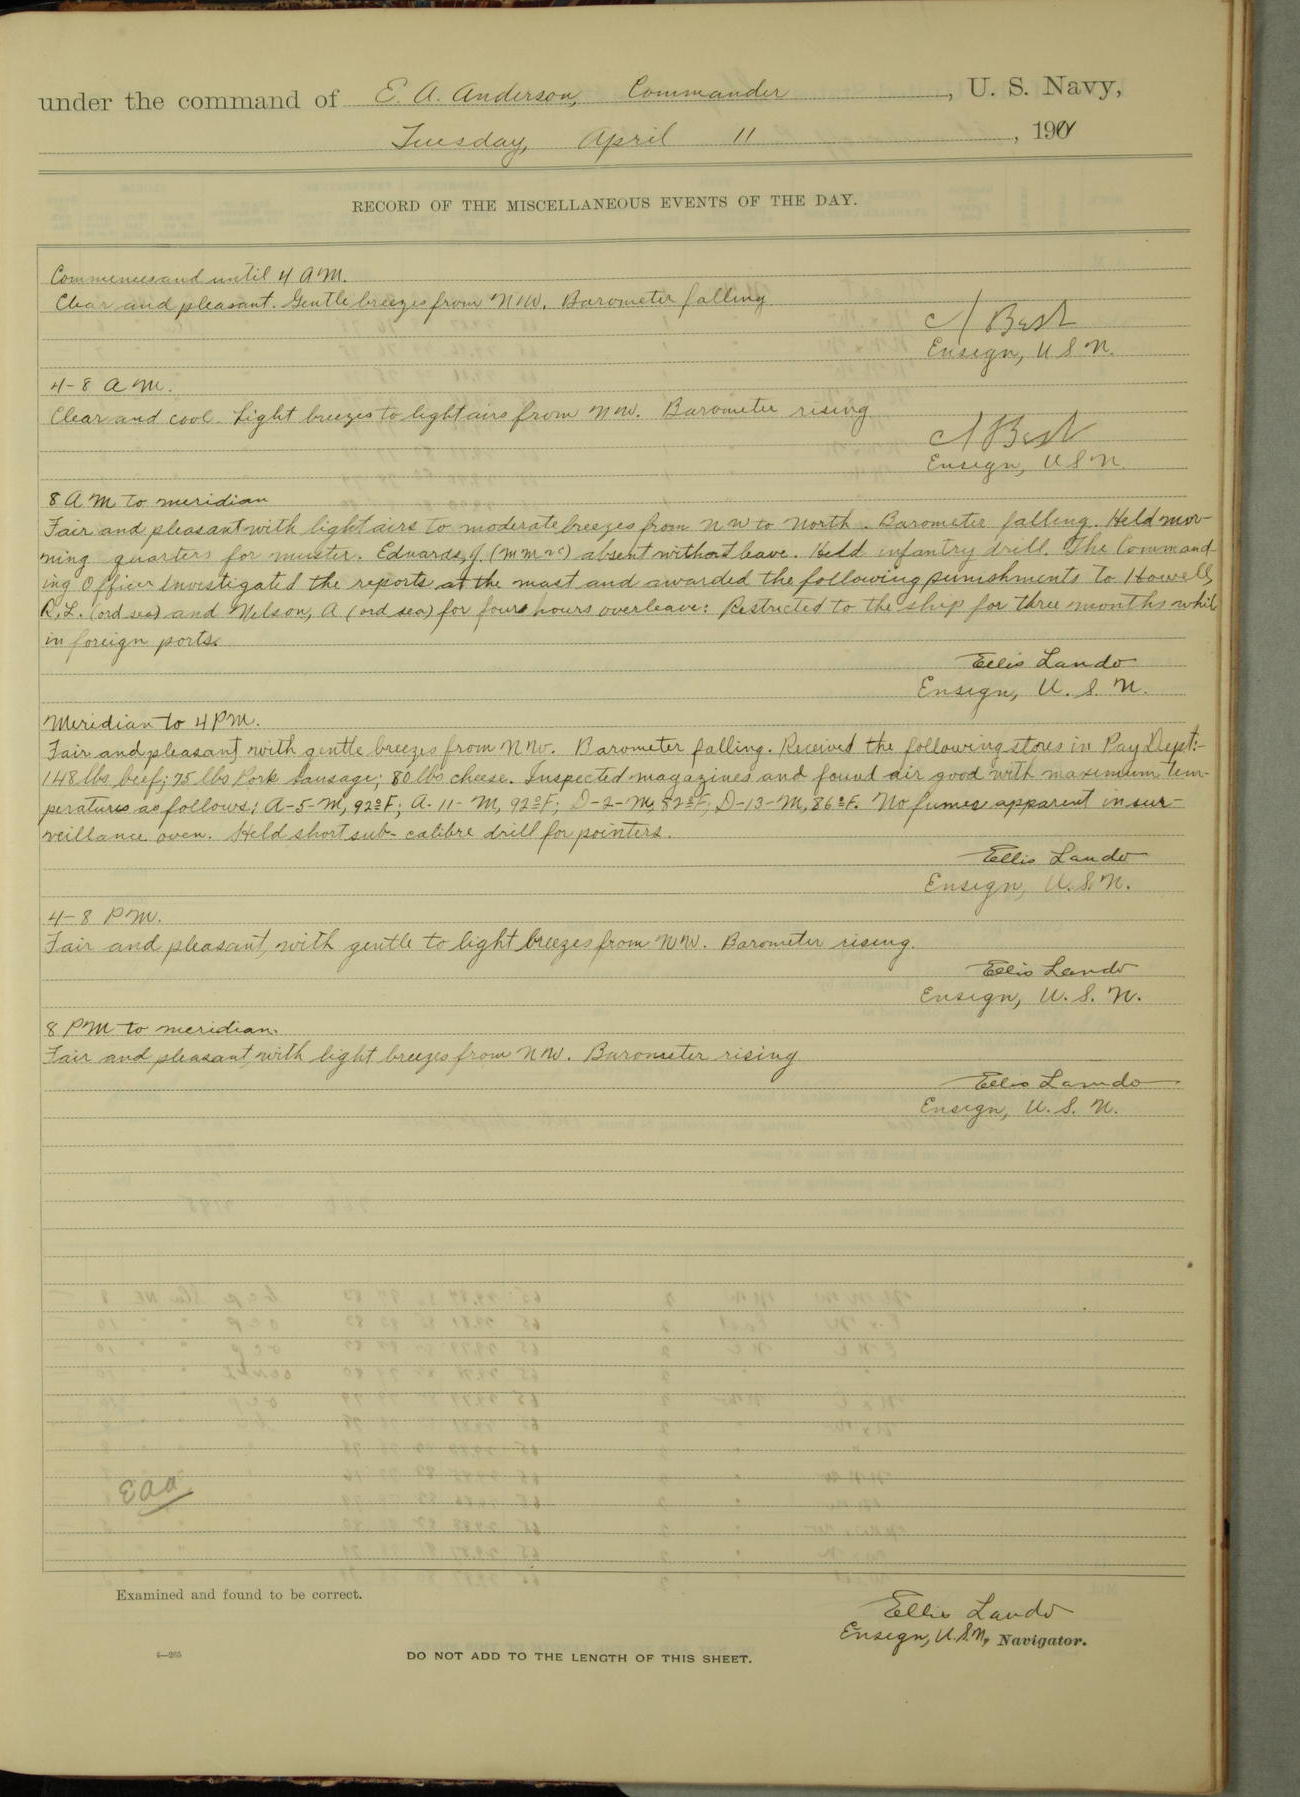 under the command of E. A. Anderson, Commander, U. S. Navy,
Tuesday, April 11, 190
RECORD OF THE MISCELLANEOUS EVENTS OF THE DAY.
Commences and until 4 A.M.
Clear and pleasant. Gentle breezes from NNW. Barometer falling
Best
Ensign, U S N.
4-8 A.M.
Clear and cool. Light breezes to light airs from NNW. Barometer rising
Best
Ensign, U S N
8 A M to meridian
Fair and pleasant with light airs to moderate breezes from NW to North. Barometer falling. Held mor-
ning quarters for muster. Edwards, J. (mm2c) absent without leave. Held infantry drill. The Command-
ing Officer investigated the reports at the mast and awarded the following punishments to Howell,
R. L. (ord sea) and Nelson, A (ord sea) for four hours overleave: Restricted to the ship for three months while
in foreign ports.
Ellis Lando
Ensign, U. S. N.
Meridian to 4 P.M.
Fair and pleasant, with gentle breezes from NNW. Barometer falling. Received the following stores in Pay Dept:-
148 lbs beef; 75 lbs Pork Sausage; 80 lbs cheese. Inspected magazines and found air good with maximum tem-
peratures as follows; A-5-M, 92°F; A-11-M, 92°F; D-2-M, 82°F; D-13-M, 86°F. No fumes apparent in sur-
veillance oven. Held short sub-calibre drill for pointers.
Ellis Lando
Ensign, U.S.N.
4-8 P.M.
Fair and pleasant, with gentle to light breezes from NW. Barometer rising.
Ellis Lando
Ensign, U. S. N.
8 PM to meridian.
Fair and pleasant, with light breezes from NW. Barometer rising
Ellis Lando
Ensign, U. S. N.
EAA
Examined and found to be correct.
Ellis Lando
Ensign, U.S.N, Navigator.
DO NOT ADD TO THE LENGTH OF THIS SHEET.